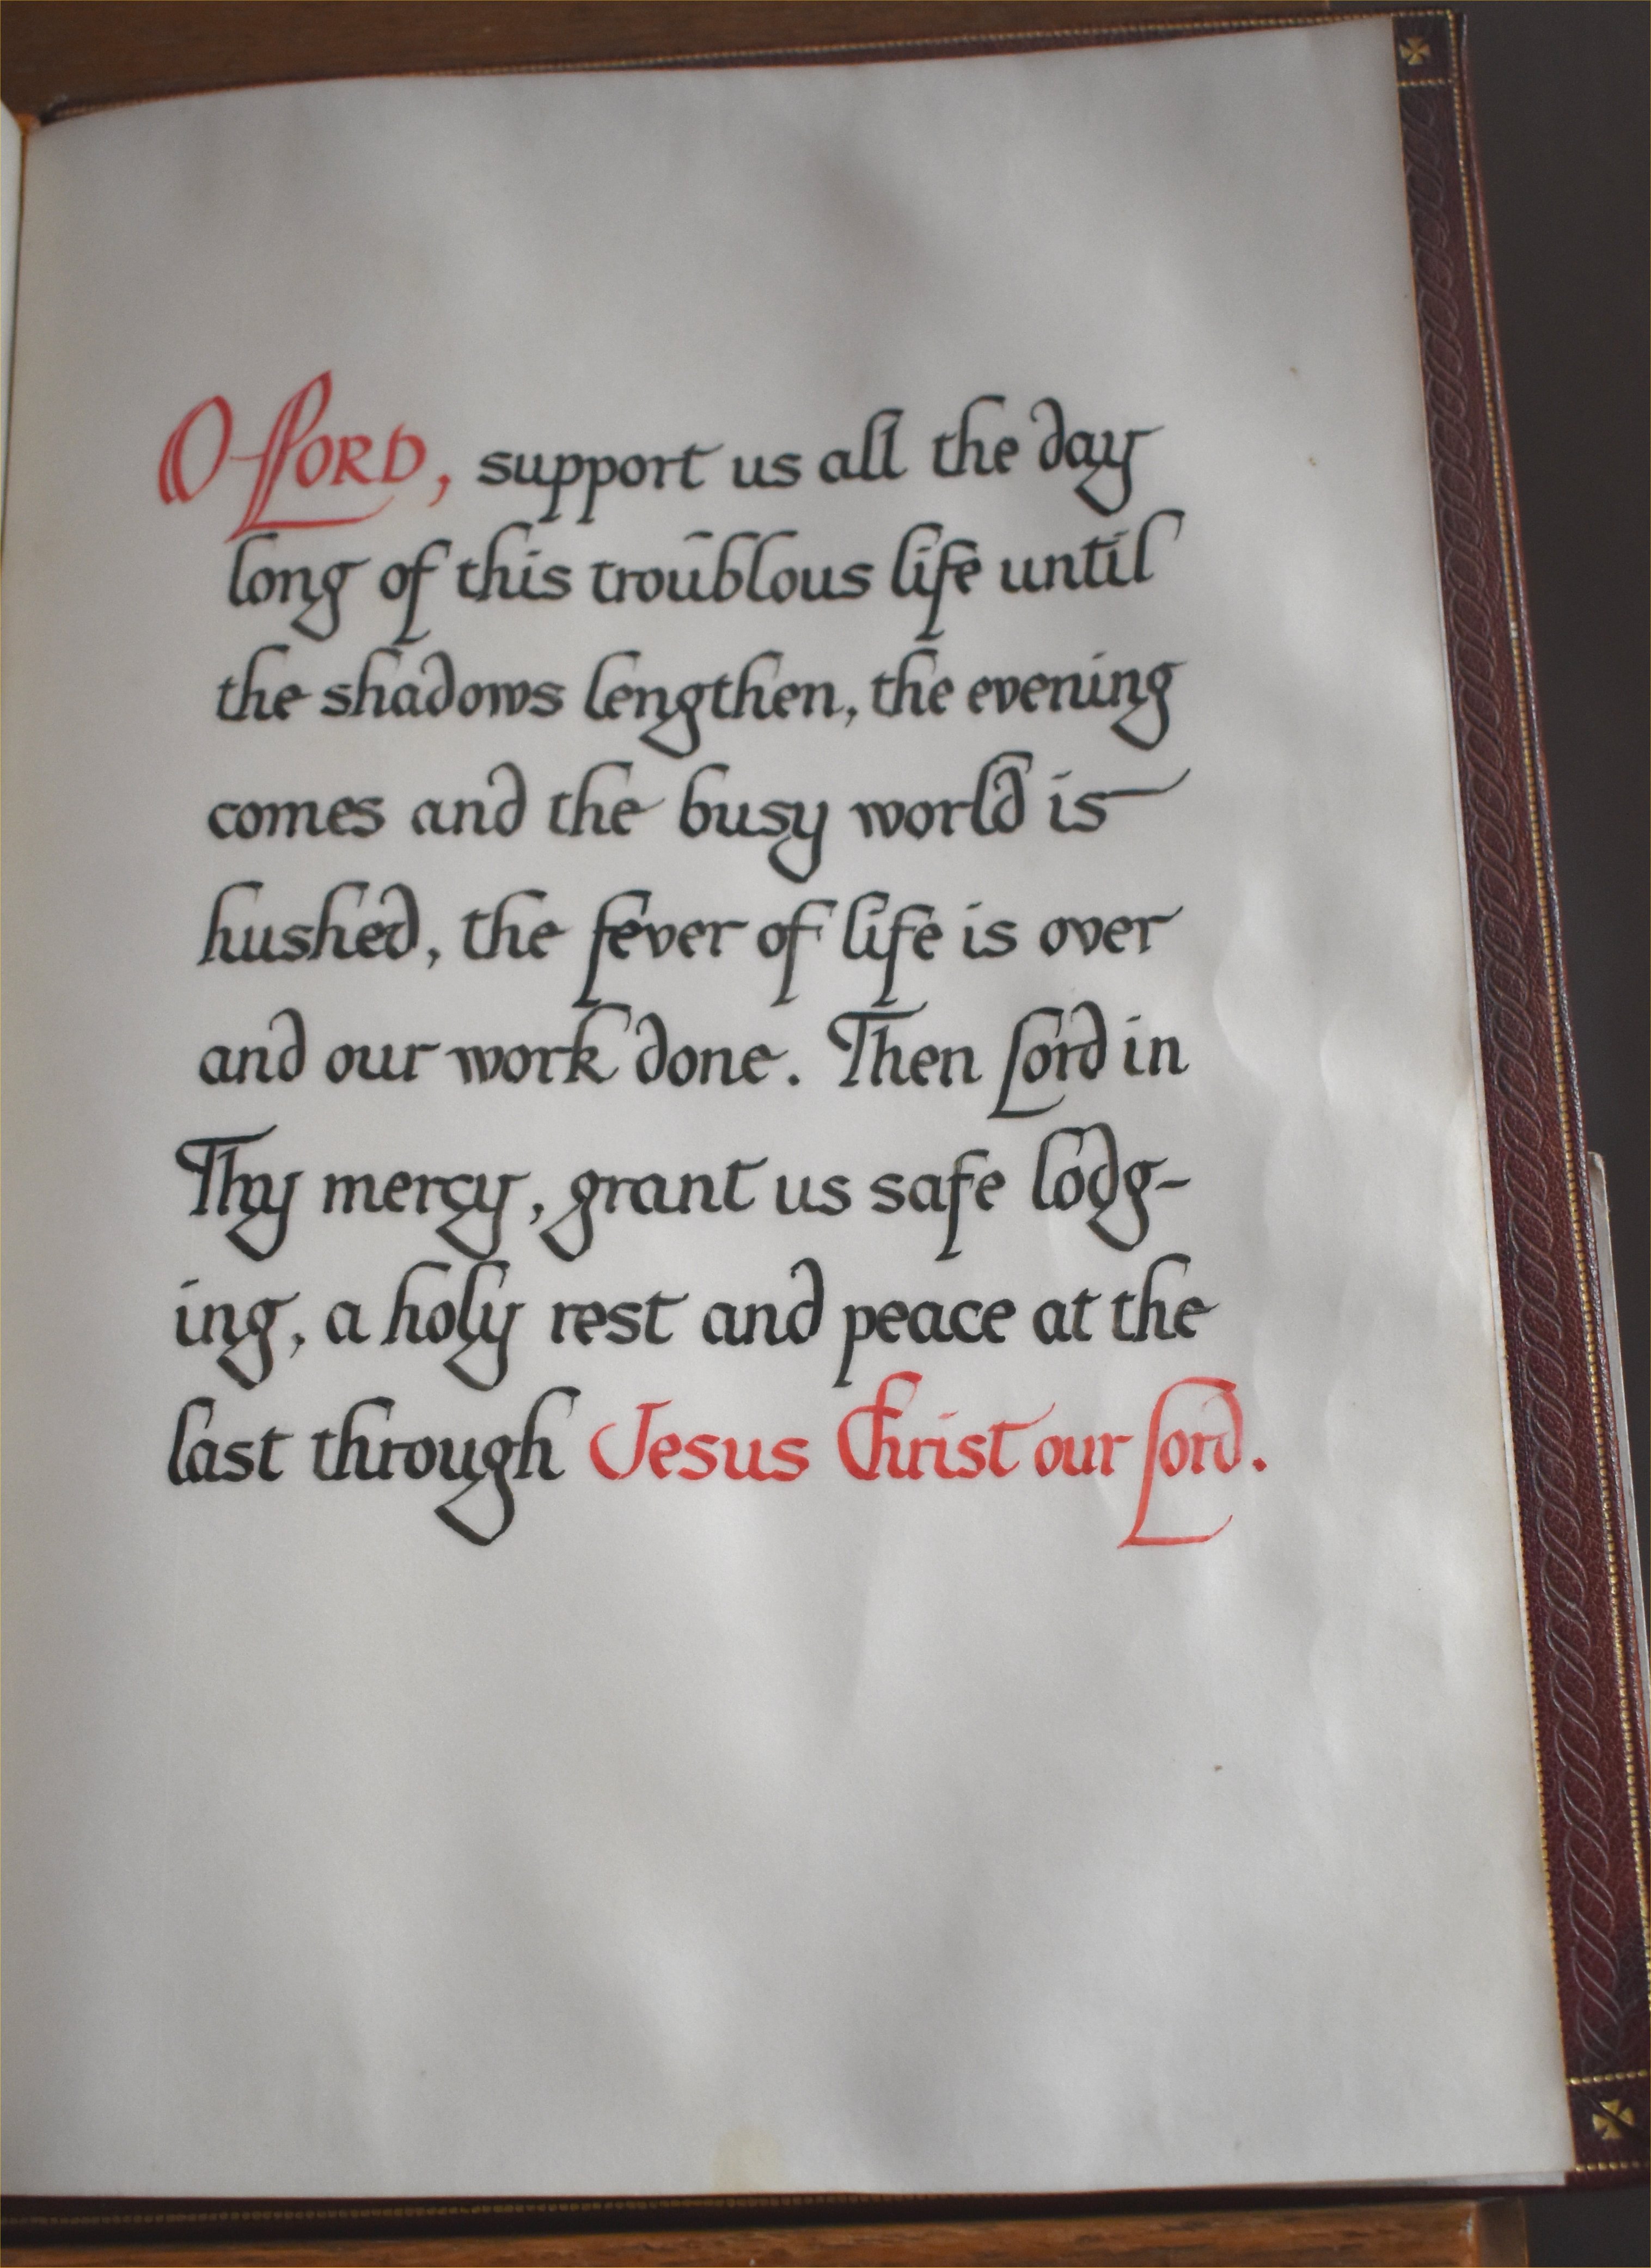 O LORD, support us all the day
long of this troublous life until
the shadows lengthen, the evening
comes and the busy world is
hushed, the fever of life is over
and our work done. Then Lord in
Thy mercy, grant us safe lodg-
ing, a holy rest and peace at the
last through Jesus Christ our Lord.